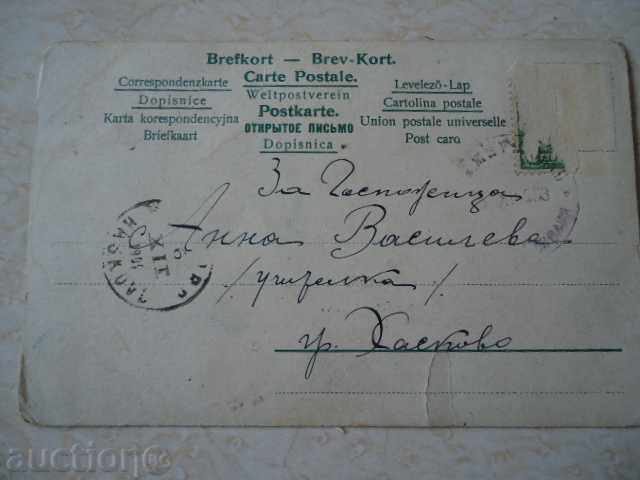 Brefkort — Brev-Kort.
Correspondenzkarte Carte Postale. Levelező-Lap
Dopisnice Weltpostverein Cartolina postale
Karta korespondencyjna Postkarte. Union postale universelle
Briefkaart ОТКРЫТОЕ ПИСЬМО Post caro
Dopisnica
За Госпожица
Анна Василева
/учителка/
гр. Хасково
XII
auction